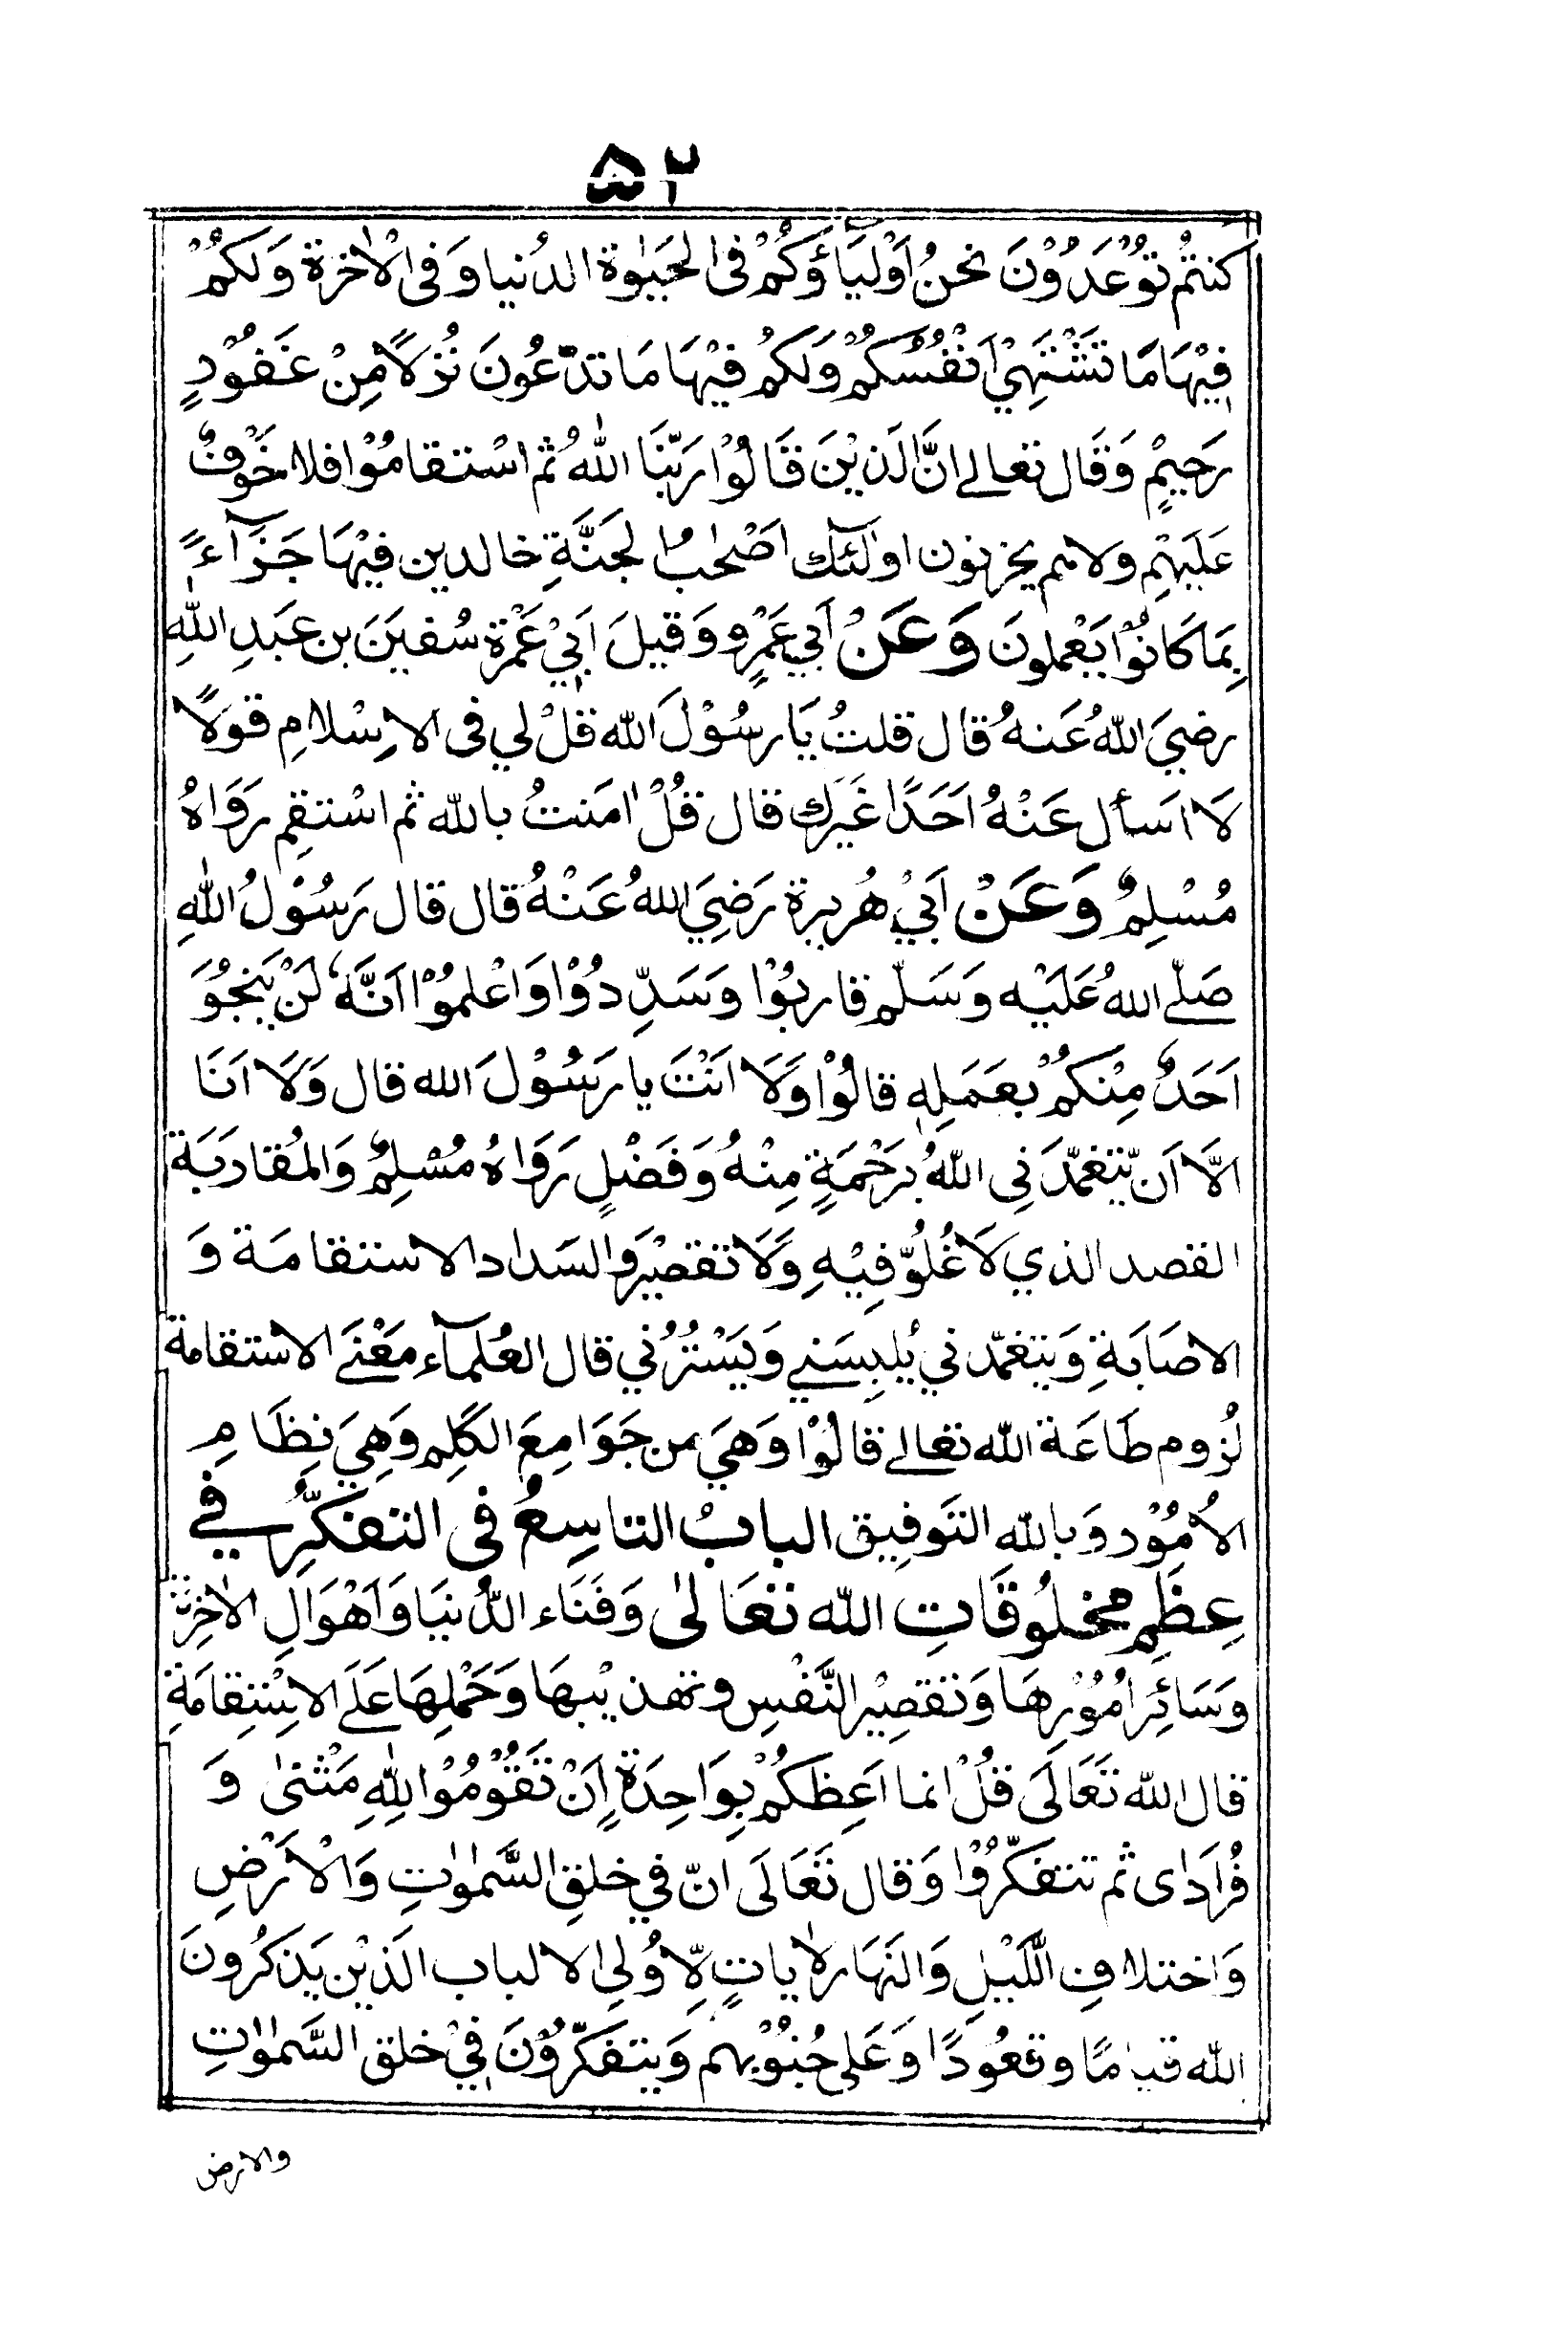 ۵۲
كنتُم تُوْعَدُوْنَ نحنُ اَوْلِيَاؤُكُمْ فی الحيٰوة الدُنيا وَفی الْاٰخرة وَلكُمْ
فِيْهَا مَا تَشْتَهِيْ اَنْفُسُكُمْ وَلَكُمْ فيْهَا مَا تدّعُونَ نُزُلًا مِنْ غَفُوْرٍ
رَحيمٍ وَقَال تعالے انَّ الَّذيْنَ قَالُوْا رَبّنَا اللهُ ثم اسْتقامُوْا فلا خَوْفٌ
عَلَيْهِم ولا هم يحزنون اولٰٓئك اَصْحٰبُ الجَنَّةِ خالدين فيْهَا جَزَآءً
بِمَا كَانُوْا يَعْملونَ وَعَنْ اَبي عَمْرٍو وَقيلَ اَبِيْ عَمْرَة سُفيٰنَ بن عَبدِ اللهِ
رضيَ اللهُ عَنهُ قال قلتُ يَا رسُوْلَ الله قلْ لي فی الاِسْلامِ قَوْلًا
لَا اسَأل عَنْهُ اَحَدًا غَيْرك قال قُلْ اٰمَنتُ بالله ثم اسْتقِم رَوَاهُ
مُسْلِمٌ وَعَنْ اَبِيْ هُريرة رَضِيَ اللهُ عَنْهُ قال قال رَسُوْلُ اللهِ
صَلّے اللهُ عَلَيْه وَسَلّم قاربُوْا وَسَدِّدُوْا وَاعْلموْا اَنَّهٗ لَنْ يَنْجُوَ
اَحَدٌ مِنْكُمْ بعَمَلِهٖ قالُوْا وَلَا اَنْتَ يا رَسُوْلَ الله قال وَلَا اَنَا
الَّا اَن يّتغمّدَنِی اللهُ برَحْمَةٍ مِنْهُ وَفَضْلٍ رَوَاهُ مُسْلِمٌ وَالمُقارَبَة
القصد الذي لَا غُلُوّ فِيْهِ وَلَا تقصيْر وَالسَداد الاستقامَة وَ
الاصَابَةِ وَيتغمّدني يُلبِسَني وَيَسْتُرُني قال العُلمآء مَعْنَے الاستقامة
لُزوم طَاعَة الله تعالے قالُوْا وَهيَ من جَوَامِعَ الكَلِم وَهِيَ نِظَام
الاُمُوْر وَبالله التَوفِيق البابُ التاسِعُ فی التفكّرِ في
عِظَمِ مخلُوقَاتِ الله تعَالیٰ وَفَنَاء الدُّنيَا وَاَهْوَالِ الاٰخِرَةِ
وَسَائِرَ اُمُوْرِهَا وَتقصِيْر النَّفْسِ وتهذيْبهَا وَحَمْلِهَا عَلَے الاِسْتِقامَةِ
قال الله تَعَالَی قلْ انما اَعِظكُمْ بِوَاحِدَةٍ اَنْ تَقُوْمُوْا لِلّٰهِ مَثْنیٰ وَ
فُرَادٰی ثم تتفكّرُوْا وَقال تَعَالَی انّ في خلقِ السَّمٰوٰتِ وَالْاَرْضِ
وَاختلافِ اللَّيْلِ وَالنَهَار لَاٰياتٍ لِّاُولِی الالباب الَذيْن يَذكرُونَ
الله قيٰامًا وقعُودًا وَعَلی جُنُوْبهم وَيتفكّرُوْنَ فِيْ خلق السَّمٰوٰتِ
والارض